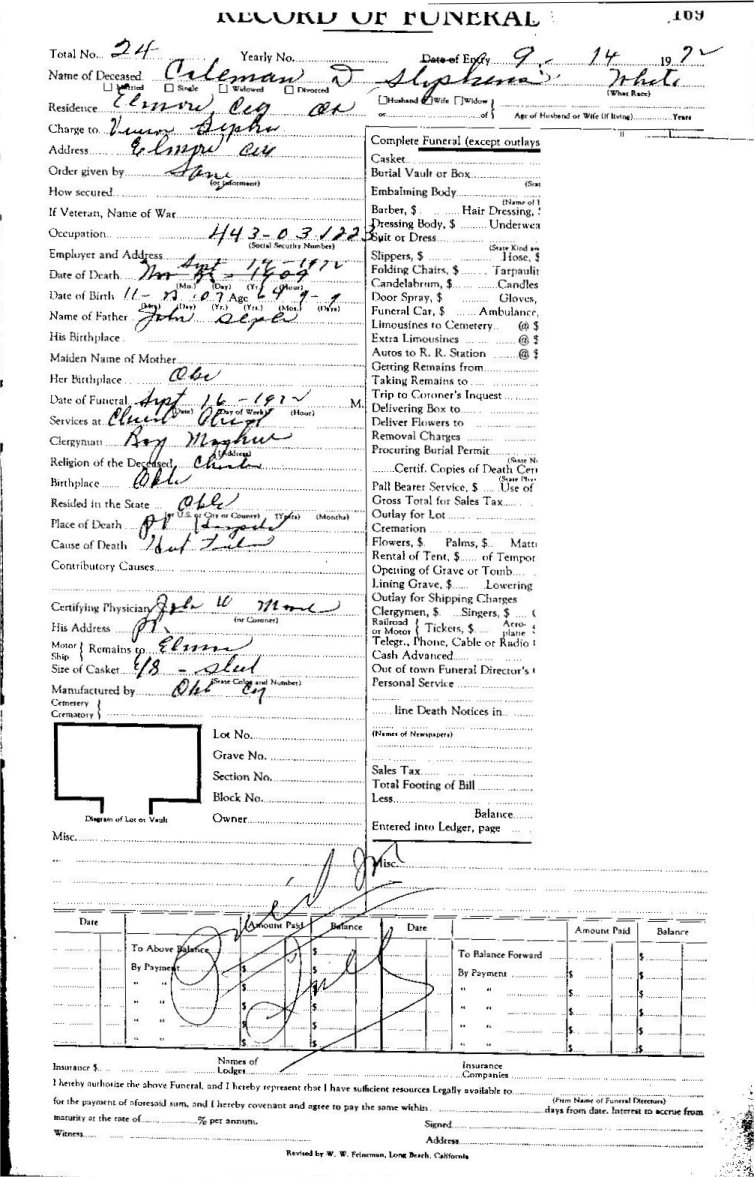 RECORD OF FUNERAL 169
Total No. 24 Yearly No. Date of Entry 9. 14 1972
Name of Deceased Coleman D Stephens White
Married Single Widowed Divorced (What Race)
Residence Elmore City Husband Wife Widow
or of Age of Husband or Wife (if living) Years
Charge to
Address Elmore City
Order given by Same
(or Informant)
How secured
If Veteran, Name of War
Occupation 443-03-1223
(Social Security Number)
Employer and Address
Date of Death Sept 14-1972
(Mo.) (Day) (Yr.) (Hour)
Date of Birth 11- 07 Age 64 9-
(Mo.) (Day) (Yr.) (Yrs.) (Mos.) (Days)
Name of Father John
His Birthplace
Maiden Name of Mother
Her Birthplace Okla
Date of Funeral Sept 16-1972 M.
(Date) (Day of Week) (Hour)
Services at Church Christ
Clergyman Roy
(Address)
Religion of the Deceased Christian
Birthplace Okla
Resided in the State Okla
(or U.S. or City or County) (Years) (Months)
Place of Death P.V. Hospital
Cause of Death Heart Failure
Contributory Causes
Certifying Physician John W Moore
(or Coroner)
His Address P.V.
Motor Ship Remains to Elmore
Size of Casket 6/8 - steel
(State Color and Number)
Manufactured by Okla City
Cemetery
Crematory
Lot No.
Grave No.
Section No.
Block No.
Owner
Diagram of Lot or Vault
Complete Funeral (except outlays
Casket
Burial Vault or Box
(Stat
Embalming Body
(Name of
Barber, $ Hair Dressing,
Dressing Body, $ Underwea
Suit or Dress
(State Kind an
Slippers, $ Hose, $
Folding Chairs, $ Tarpaulin
Candelabrum, $ Candles
Door Spray, $ Gloves,
Funeral Car, $ Ambulance,
Limousines to Cemetery @ $
Extra Limousines @ $
Autos to R. R. Station @ $
Getting Remains from
Taking Remains to
Trip to Coroner's Inquest
Delivering Box to
Deliver Flowers to
Removal Charges
Procuring Burial Permit
(State N
Certif. Copies of Death Cert
(State Phy
Pall Bearer Service, $ Use of
Gross Total for Sales Tax
Outlay for Lot
Cremation
Flowers, $ Palms, $ Matt
Rental of Tent, $ of Tempor
Opening of Grave or Tomb
Lining Grave, $ Lowering
Outlay for Shipping Charges
Clergymen, $ Singers, $
Railroad or Motor Tickers, $ Aeroplane $
Telegr., Phone, Cable or Radio
Cash Advanced
Out of town Funeral Director's
Personal Service
line Death Notices in
(Names of Newspapers)
Sales Tax
Total Footing of Bill
Less
Balance
Entered into Ledger, page
Misc. Misc.
Paid In
Full
Date Amount Paid Balance Date Amount Paid Balance
To Above Balance $ To Balance Forward $
By Payment $ $ By Payment $ $
" " $ $ " " $ $
" " $ $ " " $ $
" " $ $ " " $ $
" " $ $ " " $ $
Insurance $ Names of Lodges Insurance Companies
I hereby authorize the above Funeral, and I hereby represent that I have sufficient resources Legally available to
(Firm Name of Funeral Directors)
for the payment of aforesaid sum, and I hereby covenant and agree to pay the same within days from date. Interest to accrue from
maturity at the rate of % per annum. Signed
Witness Address
Revised by W. W. Feineman, Long Beach, California